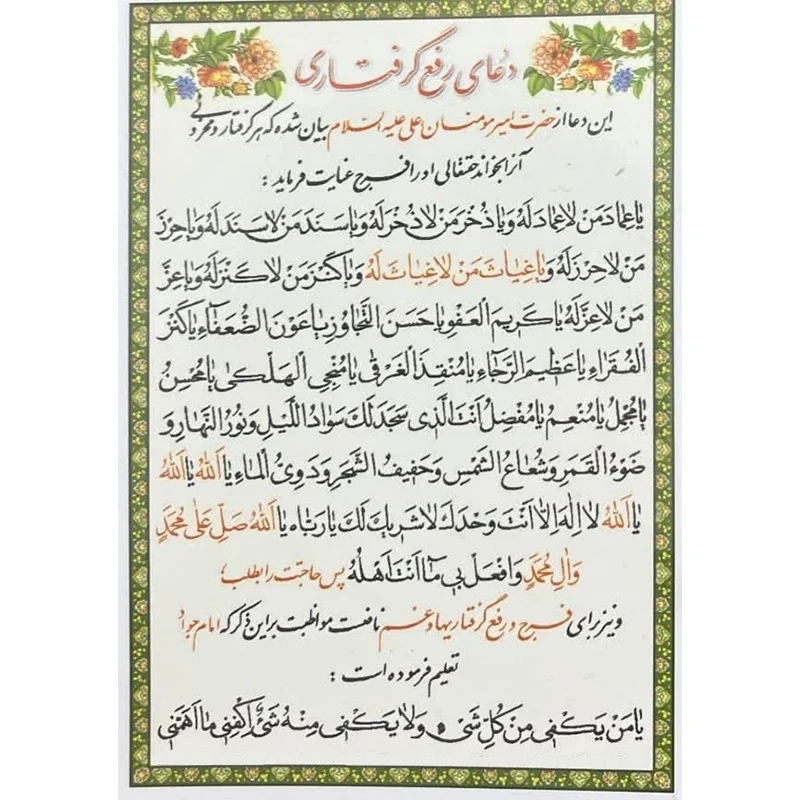 دعای رفع گرفتاری
این دعا از حضرت امیرمومنان علی علیه السلام بیان شده که هر گرفتار و محزونی
آنرا بخواند حقتعالی او را فرج عنایت فرماید :
یا عِمادَ مَنْ لا عِمادَ لَهُ وَ یا ذُخْرَ مَنْ لا ذُخْرَ لَهُ وَ یا سَنَدَ مَنْ لا سَنَدَ لَهُ وَ یا حِرْزَ
مَنْ لا حِرْزَ لَهُ وَ یا غِیاثَ مَنْ لا غِیاثَ لَهُ وَ یا کَنْزَ مَنْ لا کَنْزَ لَهُ وَ یا عِزَّ
مَنْ لا عِزَّ لَهُ یا کَریمَ الْعَفْوِ یا حَسَنَ التَّجاوُزِ یا عَوْنَ الضُّعَفاءِ یا کَنْزَ
الْفُقَراءِ یا عَظیمَ الرَّجاءِ یا مُنْقِذَ الْغَرْقی یا مُنْجِیَ الْهَلْکی یا مُحْسِنُ
یا مُجْمِلُ یا مُنْعِمُ یا مُفْضِلُ اَنْتَ الَّذی سَجَدَ لَکَ سَوادُ اللَّیْلِ وَ نُورُ النَّهارِ وَ
ضَوْءُ الْقَمَرِ وَ شُعاعُ الشَّمْسِ وَ حَفیفُ الشَّجَرِ وَ دَوِیُّ الْماءِ یا اَللهُ یا اَللهُ
یا اَللهُ لا اِلهَ اِلاّ اَنْتَ وَحْدَکَ لا شَریکَ لَکَ یا رَبّاهُ یا اَللهُ صَلِّ عَلی مُحَمَّدٍ
وَ الِ مُحَمَّدٍ وَ افْعَلْ بی ما اَنْتَ اَهْلُهُ پس حاجتت را بطلب؛
و نیز برای فرج و رفع گرفتاریها و غم نافعست مواظبت بر این ذکر که امام جواد
تعلیم فرموده است :
یا مَنْ یَکْفی مِنْ کُلِّ شَیْءٍ وَ لا یَکْفی مِنْهُ شَیْءٌ اِکْفِنی ما اَهَمَّنی